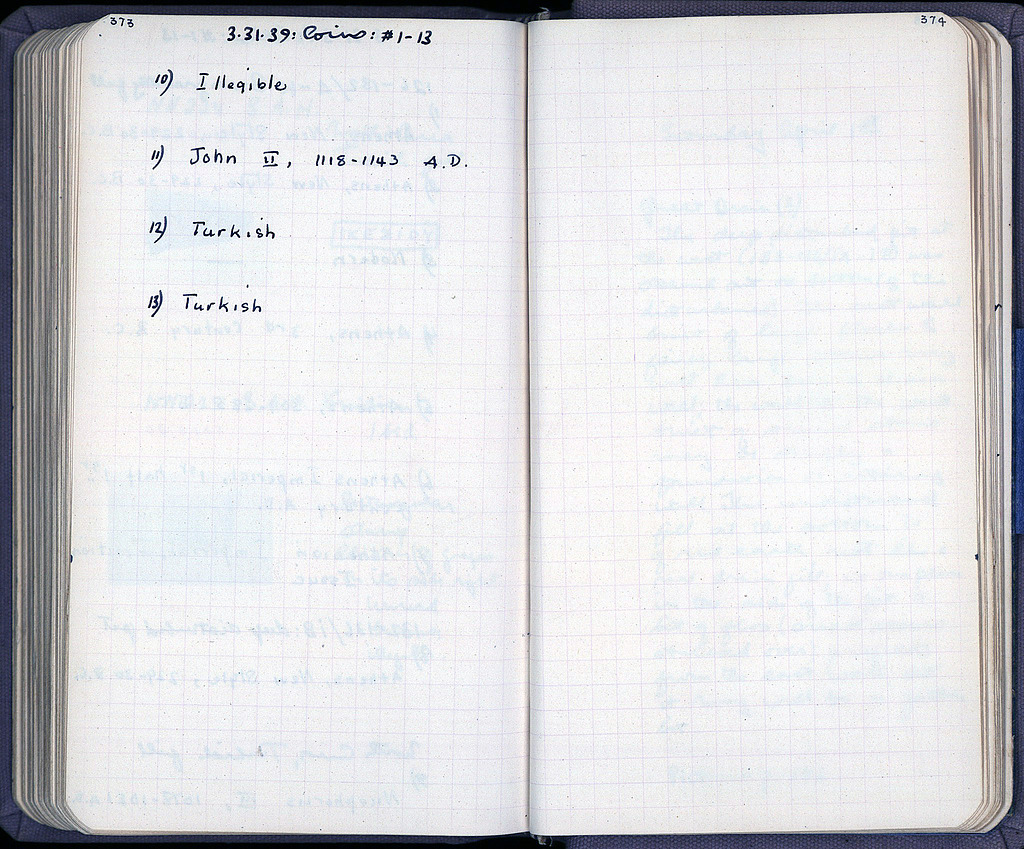 373
3.31.39: Coins: #1-13
10) Illegible
11) John II, 1118-1143 A.D.
12) Turkish
13) Turkish
374